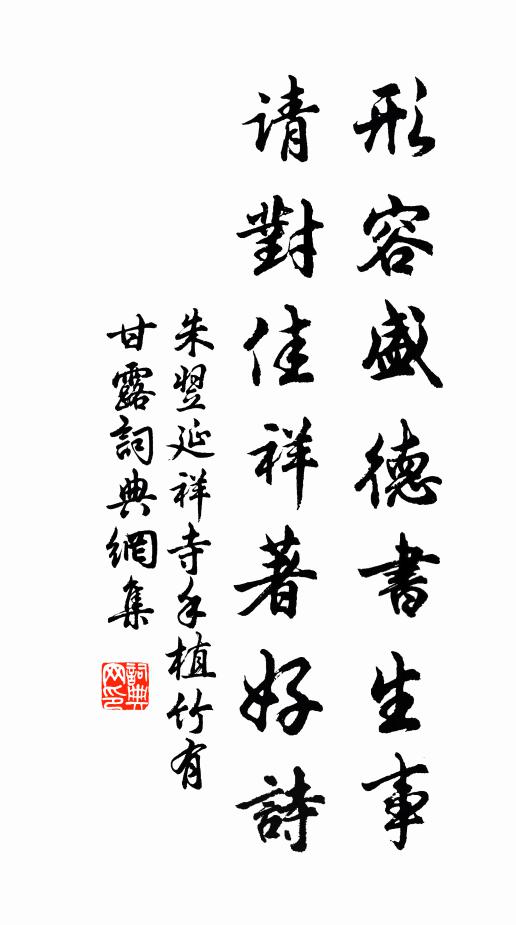 形容盛德書生事
请對佳祥著好詩
朱翌延祥寺手植竹有
甘露詞典網集
詞典网印